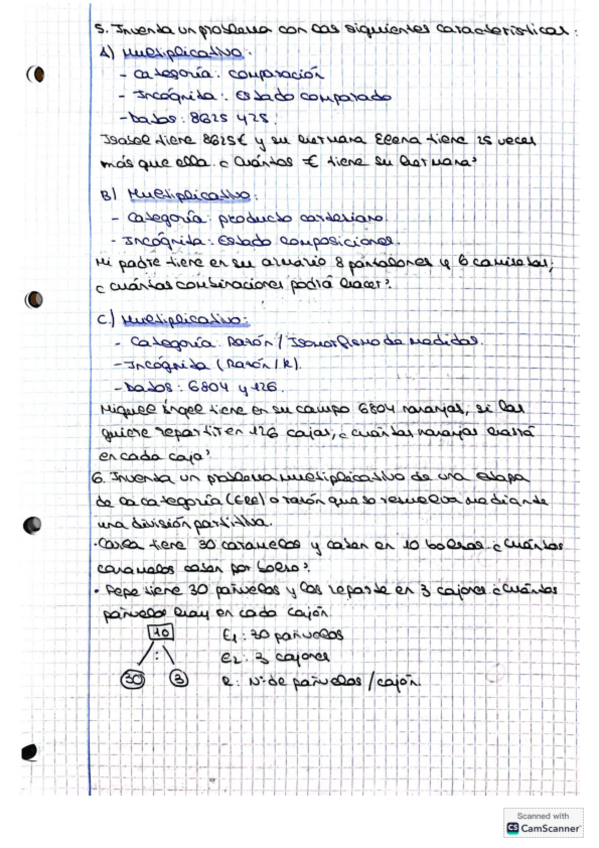 5. Inventa un problema con las siguientes características:
A) Multiplicativo:
- Categoría: comparación
- Incógnita: Estado comparado
- Datos: 8625 y 25.
Isabel tiene 8625€ y su hermana Elena tiene 25 veces
más que ella. ¿Cuántos € tiene su hermana?
B) Multiplicativo:
- Categoría: producto cartesiano.
- Incógnita: Estado composiciones.
Mi padre tiene en su armario 8 pantalones y 6 camisetas,
¿cuántas combinaciones podrá hacer?
C.) Multiplicativo:
- Categoría: Razón / Isomorfismo de medidas.
- Incógnita (Razón / R).
- Datos: 6804 y 126.
Miguel Ángel tiene en su campo 6804 naranjas, si las
quiere repartir en 126 cajas, ¿cuántas naranjas habrá
en cada caja?
6. Inventa un problema multiplicativo de una etapa
de la categoría (ERE) o razón que se resuelva mediante
una división partitiva.
· Carla tiene 30 caramelos y caben en 10 bolsas ¿Cuántos
caramelos caben por bolso?
· Pepe tiene 30 pañuelos y los reparte en 3 cajones ¿Cuántos
pañuelos hay en cada cajón
10 E1: 30 pañuelos
: E2: 3 cajones
30 3 R: Nº de pañuelos / cajón.
Scanned with
CS CamScanner